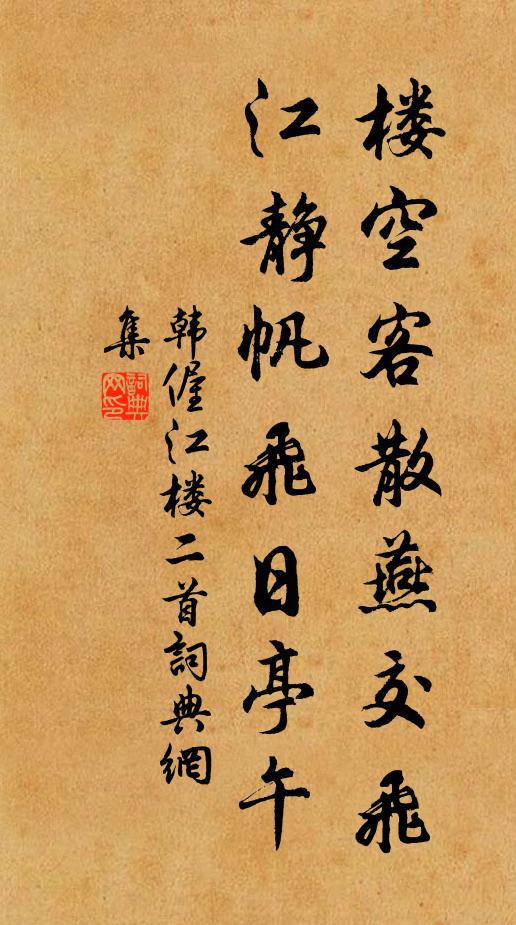 楼空客散燕交飞
江静帆飞日亭午
韩偓江楼二首詞典網
集
詞典网印